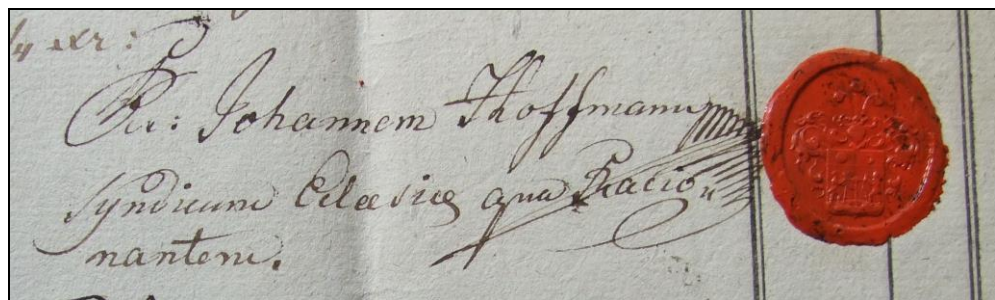 ¼ xr:
Per: Johannem Hoffmann
Syndicum Eclesiæ qua Racio„
nantem.